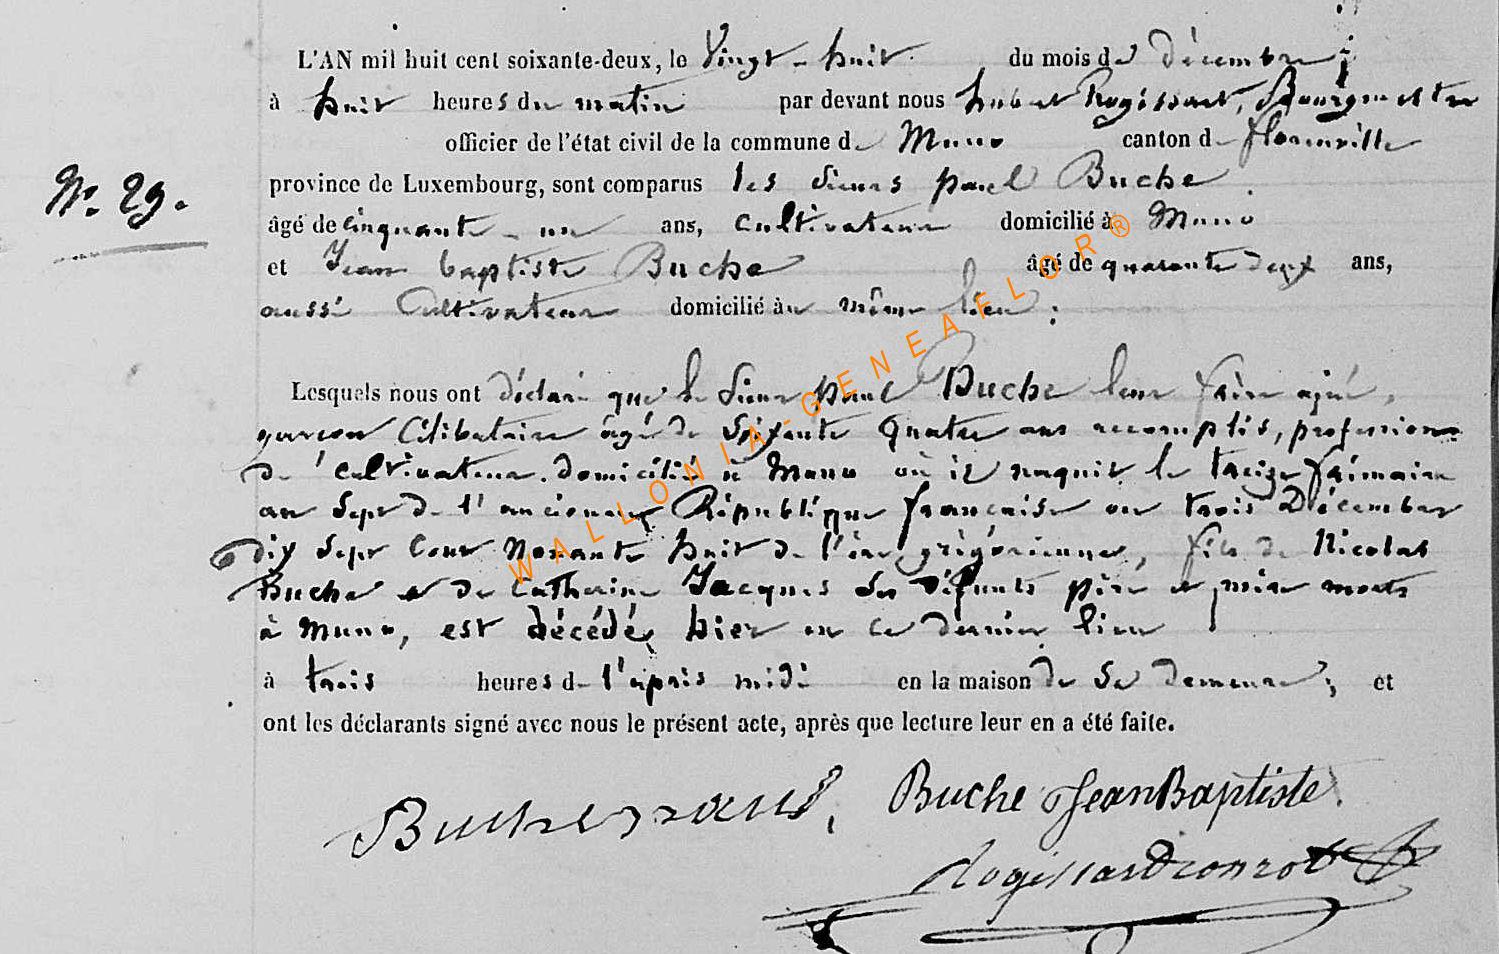 L'AN mil huit cent soixante-deux, le Vingt-huit du mois de décembre;
à huit heures du matin par devant nous hubert Rogissart, Bourgmestre
officier de l'état civil de la commune de Muno canton de florenville
N°. 29.
province de Luxembourg, sont comparus les sieurs paul Buche
âgé de cinquante-un ans, cultivateur domicilié à Muno
et Jean baptiste Buche âgé de quarante deux ans,
aussi Cultivateur domicilié au même lieu;
Lesquels nous ont déclaré que le Sieur paul Buche leur frère ainé,
garcon Célibataire âgé de Soixante quatre ans accomplis, profession
de cultivateur, domicilié à Muno où il naquit le treize frimaire
an Sept de l'ancienne République française ou trois Décembre
dix Sept Cent Nonante huit de l'ère grégorienne, fils de Nicolas
Buche et de Catherine Jacques Ses défunts père et mère morts
à Muno, est décédé hier en ce dernier lieu
à trois heures de l'après midi en la maison de Sa demeure; et
ont les déclarants signé avec nous le présent acte, après que lecture leur en a été faite.
Buche Jean Baptiste
WALLONIA-GENEAFLOR®